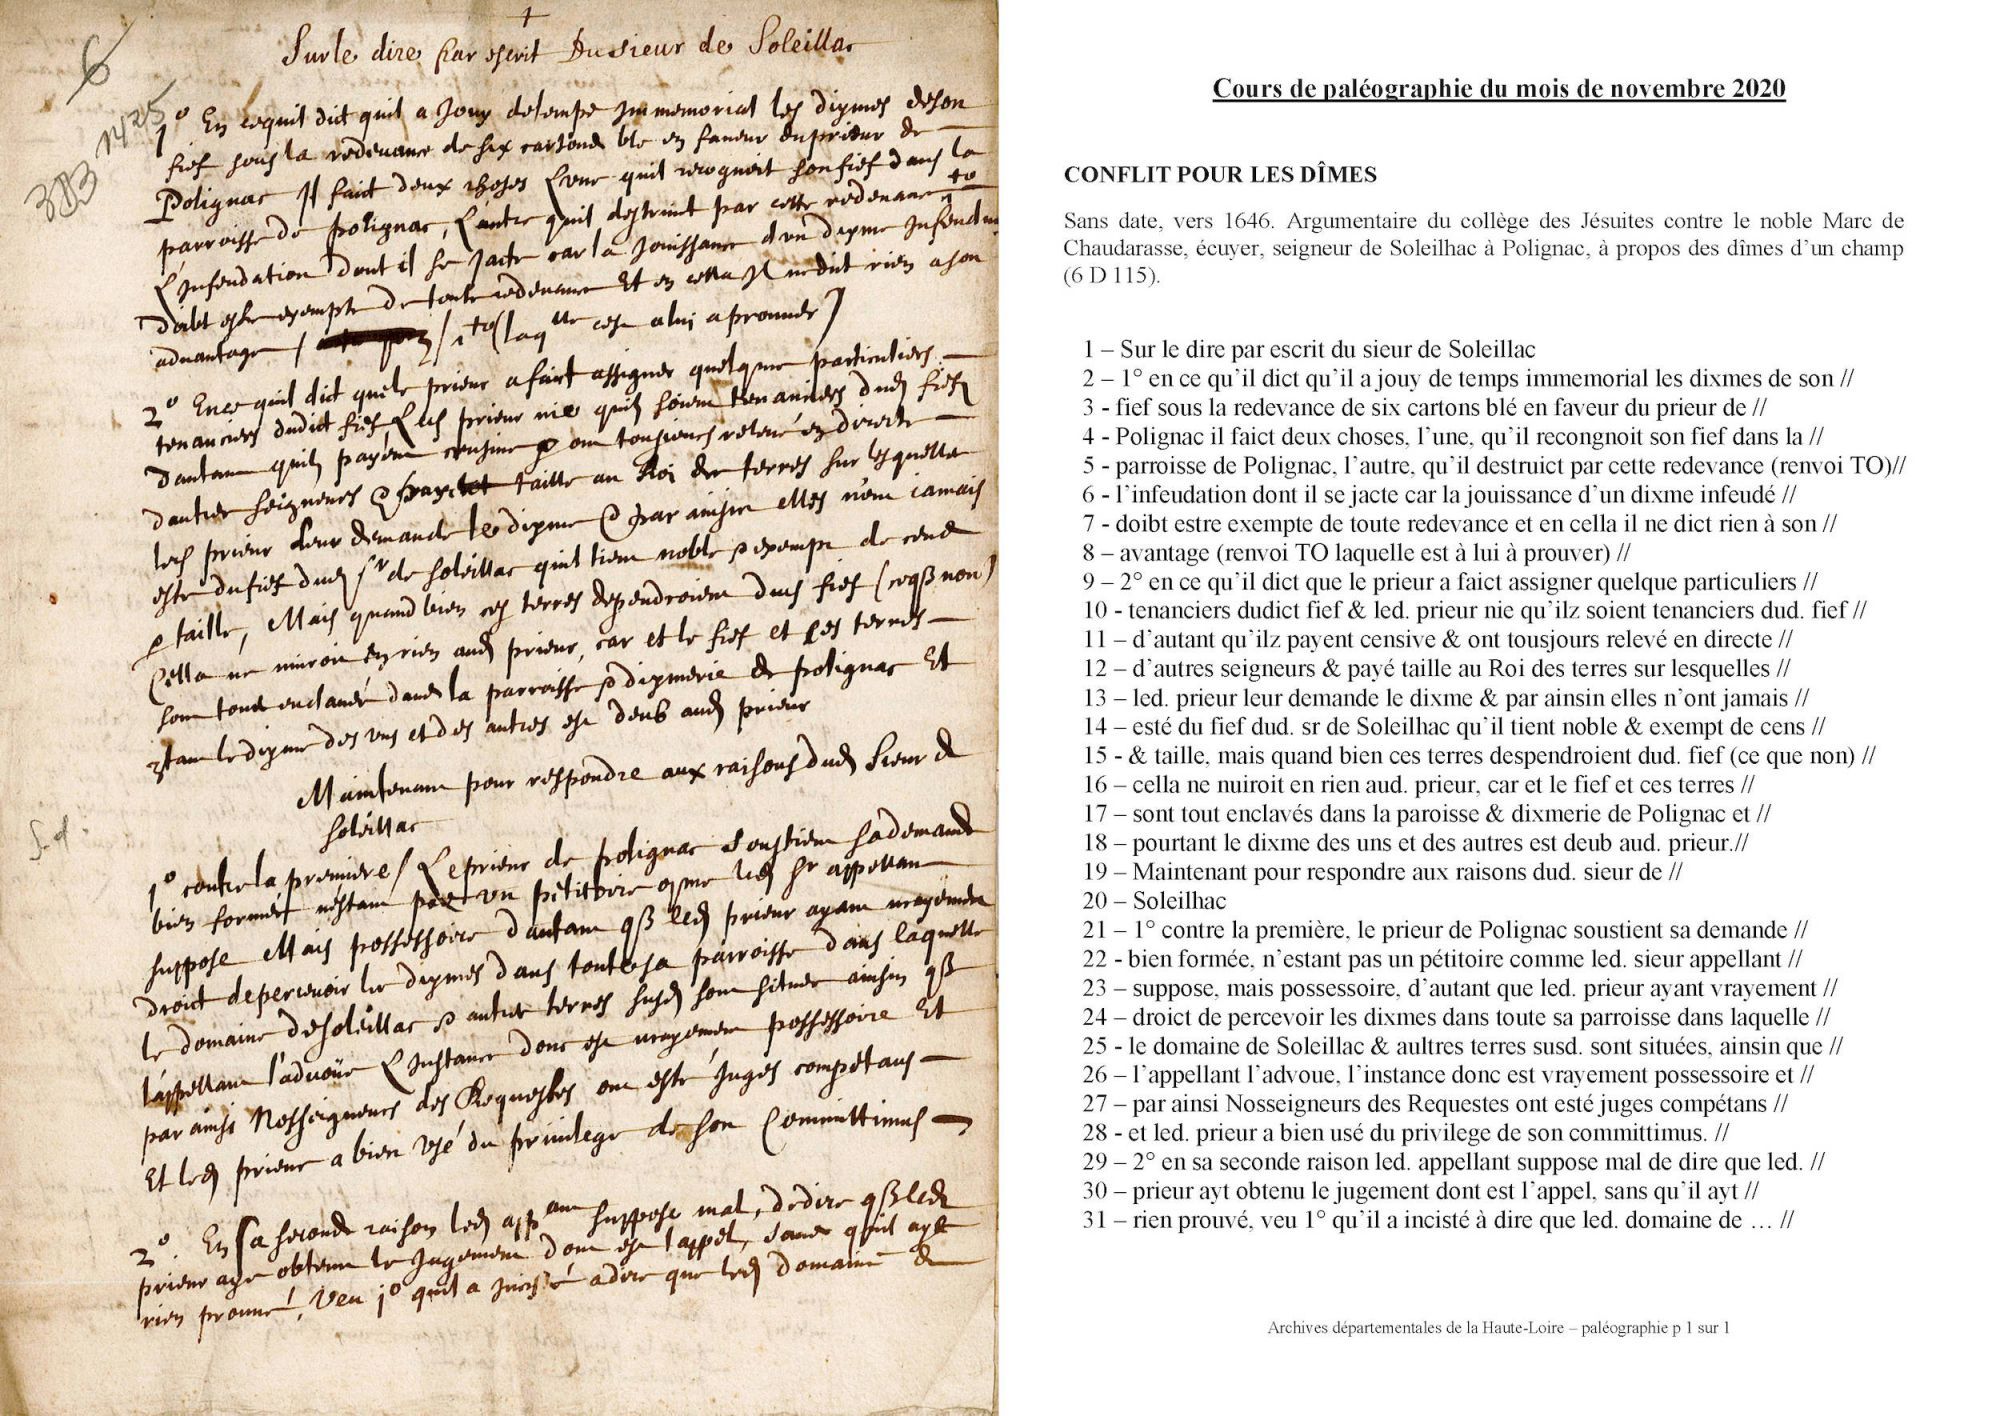 +
Sur le dire par escrit Du sieur de Soleillac
6
1425
383
1° En cequil dict quil a Jouy detemps Immemorial les dixmes deson
fief sous la redevance de six cartons ble en faveur duprieur de
Polignac Il faict deux choses L'une quil recognoit son fief dans la
parroisse de polignac, L'autre quil destruict par cette redevance to
L'infeudation dont il se Jacte car la Jouissance d'un dixme Infeudé
doibt estre exempte de toute redevance Et en cella Il ne dict rien a son
advantage / 1 to (laqlle est a lui a prouver)
2° Ence quil dict que le prieur a faict assigner quelque particuliers
tenanciers dudict fief, Led prieur nie quilz soient tenanciers dud fief
dautant quilz payent censive & ont tousjours relevé en directe
dautres seigneurs & payé taille au Roi des terres sur lesquelles
led prieur leur demande le dixme & par ainsin elles n'ont iamais
esté dufief dud sr de soleillac quil tient noble & exempt de cens
& taille, Mais quand bien ces terres despendroient dud fief (ce que non)
Cella ne nuiroit en rien aud prieur, car et le fief et ces terres
sont tous enclavés dans la parroisse & dixmerie de polignac Et
pourtant le dixme des uns et des autres est deub aud prieur
Maintenant pour respondre aux raisons dud sieur de
soleillac
S.d.
1° contre la premiere / Le prieur de polignac soustient sa demande
bien formée nestant pas un petitoire comme led sr appellant
suppose Mais possessoire dautant que led prieur ayant vrayement
droict depercevoir les dixmes dans toute sa parroisse dans laquelle
le domaine desoleillac & autres terres susd sont situées ainsin que
lappellant l'advoüe L'instance donc est vrayement possessoire Et
par ainsi Nosseigneurs des Requestes ont esté juges competans
Et led prieur a bien usé du privilege de son Committimus
2° En sa seconde raison led appant suppose mal, dedire que led
prieur aye obtenu le Jugement dont est lappel, sans quil aye
rien prouvé, Veu 1° quil a incisté a dire que led domaine de
Cours de paléographie du mois de novembre 2020
CONFLIT POUR LES DÎMES
Sans date, vers 1646. Argumentaire du collège des Jésuites contre le noble Marc de
Chaudarasse, écuyer, seigneur de Soleilhac à Polignac, à propos des dîmes d'un champ
(6 D 115).
1 – Sur le dire par escrit du sieur de Soleillac
2 – 1° en ce qu'il dict qu'il a jouy de temps immemorial les dixmes de son //
3 - fief sous la redevance de six cartons blé en faveur du prieur de //
4 - Polignac il faict deux choses, l'une, qu'il recongnoit son fief dans la //
5 - parroisse de Polignac, l'autre, qu'il destruict par cette redevance (renvoi TO)//
6 - l'infeudation dont il se jacte car la jouissance d'un dixme infeudé //
7 - doibt estre exempte de toute redevance et en cella il ne dict rien à son //
8 – avantage (renvoi TO laquelle est à lui à prouver) //
9 – 2° en ce qu'il dict que le prieur a faict assigner quelque particuliers //
10 - tenanciers dudict fief & led. prieur nie qu'ilz soient tenanciers dud. fief //
11 – d'autant qu'ilz payent censive & ont tousjours relevé en directe //
12 – d'autres seigneurs & payé taille au Roi des terres sur lesquelles //
13 – led. prieur leur demande le dixme & par ainsin elles n'ont jamais //
14 – esté du fief dud. sr de Soleilhac qu'il tient noble & exempt de cens //
15 - & taille, mais quand bien ces terres despendroient dud. fief (ce que non) //
16 – cella ne nuiroit en rien aud. prieur, car et le fief et ces terres //
17 – sont tout enclavés dans la paroisse & dixmerie de Polignac et //
18 – pourtant le dixme des uns et des autres est deub aud. prieur.//
19 – Maintenant pour respondre aux raisons dud. sieur de //
20 – Soleilhac
21 – 1° contre la première, le prieur de Polignac soustient sa demande //
22 - bien formée, n'estant pas un pétitoire comme led. sieur appellant //
23 – suppose, mais possessoire, d'autant que led. prieur ayant vrayement //
24 – droict de percevoir les dixmes dans toute sa parroisse dans laquelle //
25 - le domaine de Soleillac & aultres terres susd. sont situées, ainsin que //
26 – l'appellant l'advoue, l'instance donc est vrayement possessoire et //
27 – par ainsi Nosseigneurs des Requestes ont esté juges compétans //
28 - et led. prieur a bien usé du privilege de son committimus. //
29 – 2° en sa seconde raison led. appellant suppose mal de dire que led. //
30 – prieur ayt obtenu le jugement dont est l'appel, sans qu'il ayt //
31 – rien prouvé, veu 1° qu'il a incisté à dire que led. domaine de … //
Archives départementales de la Haute-Loire – paléographie p 1 sur 1